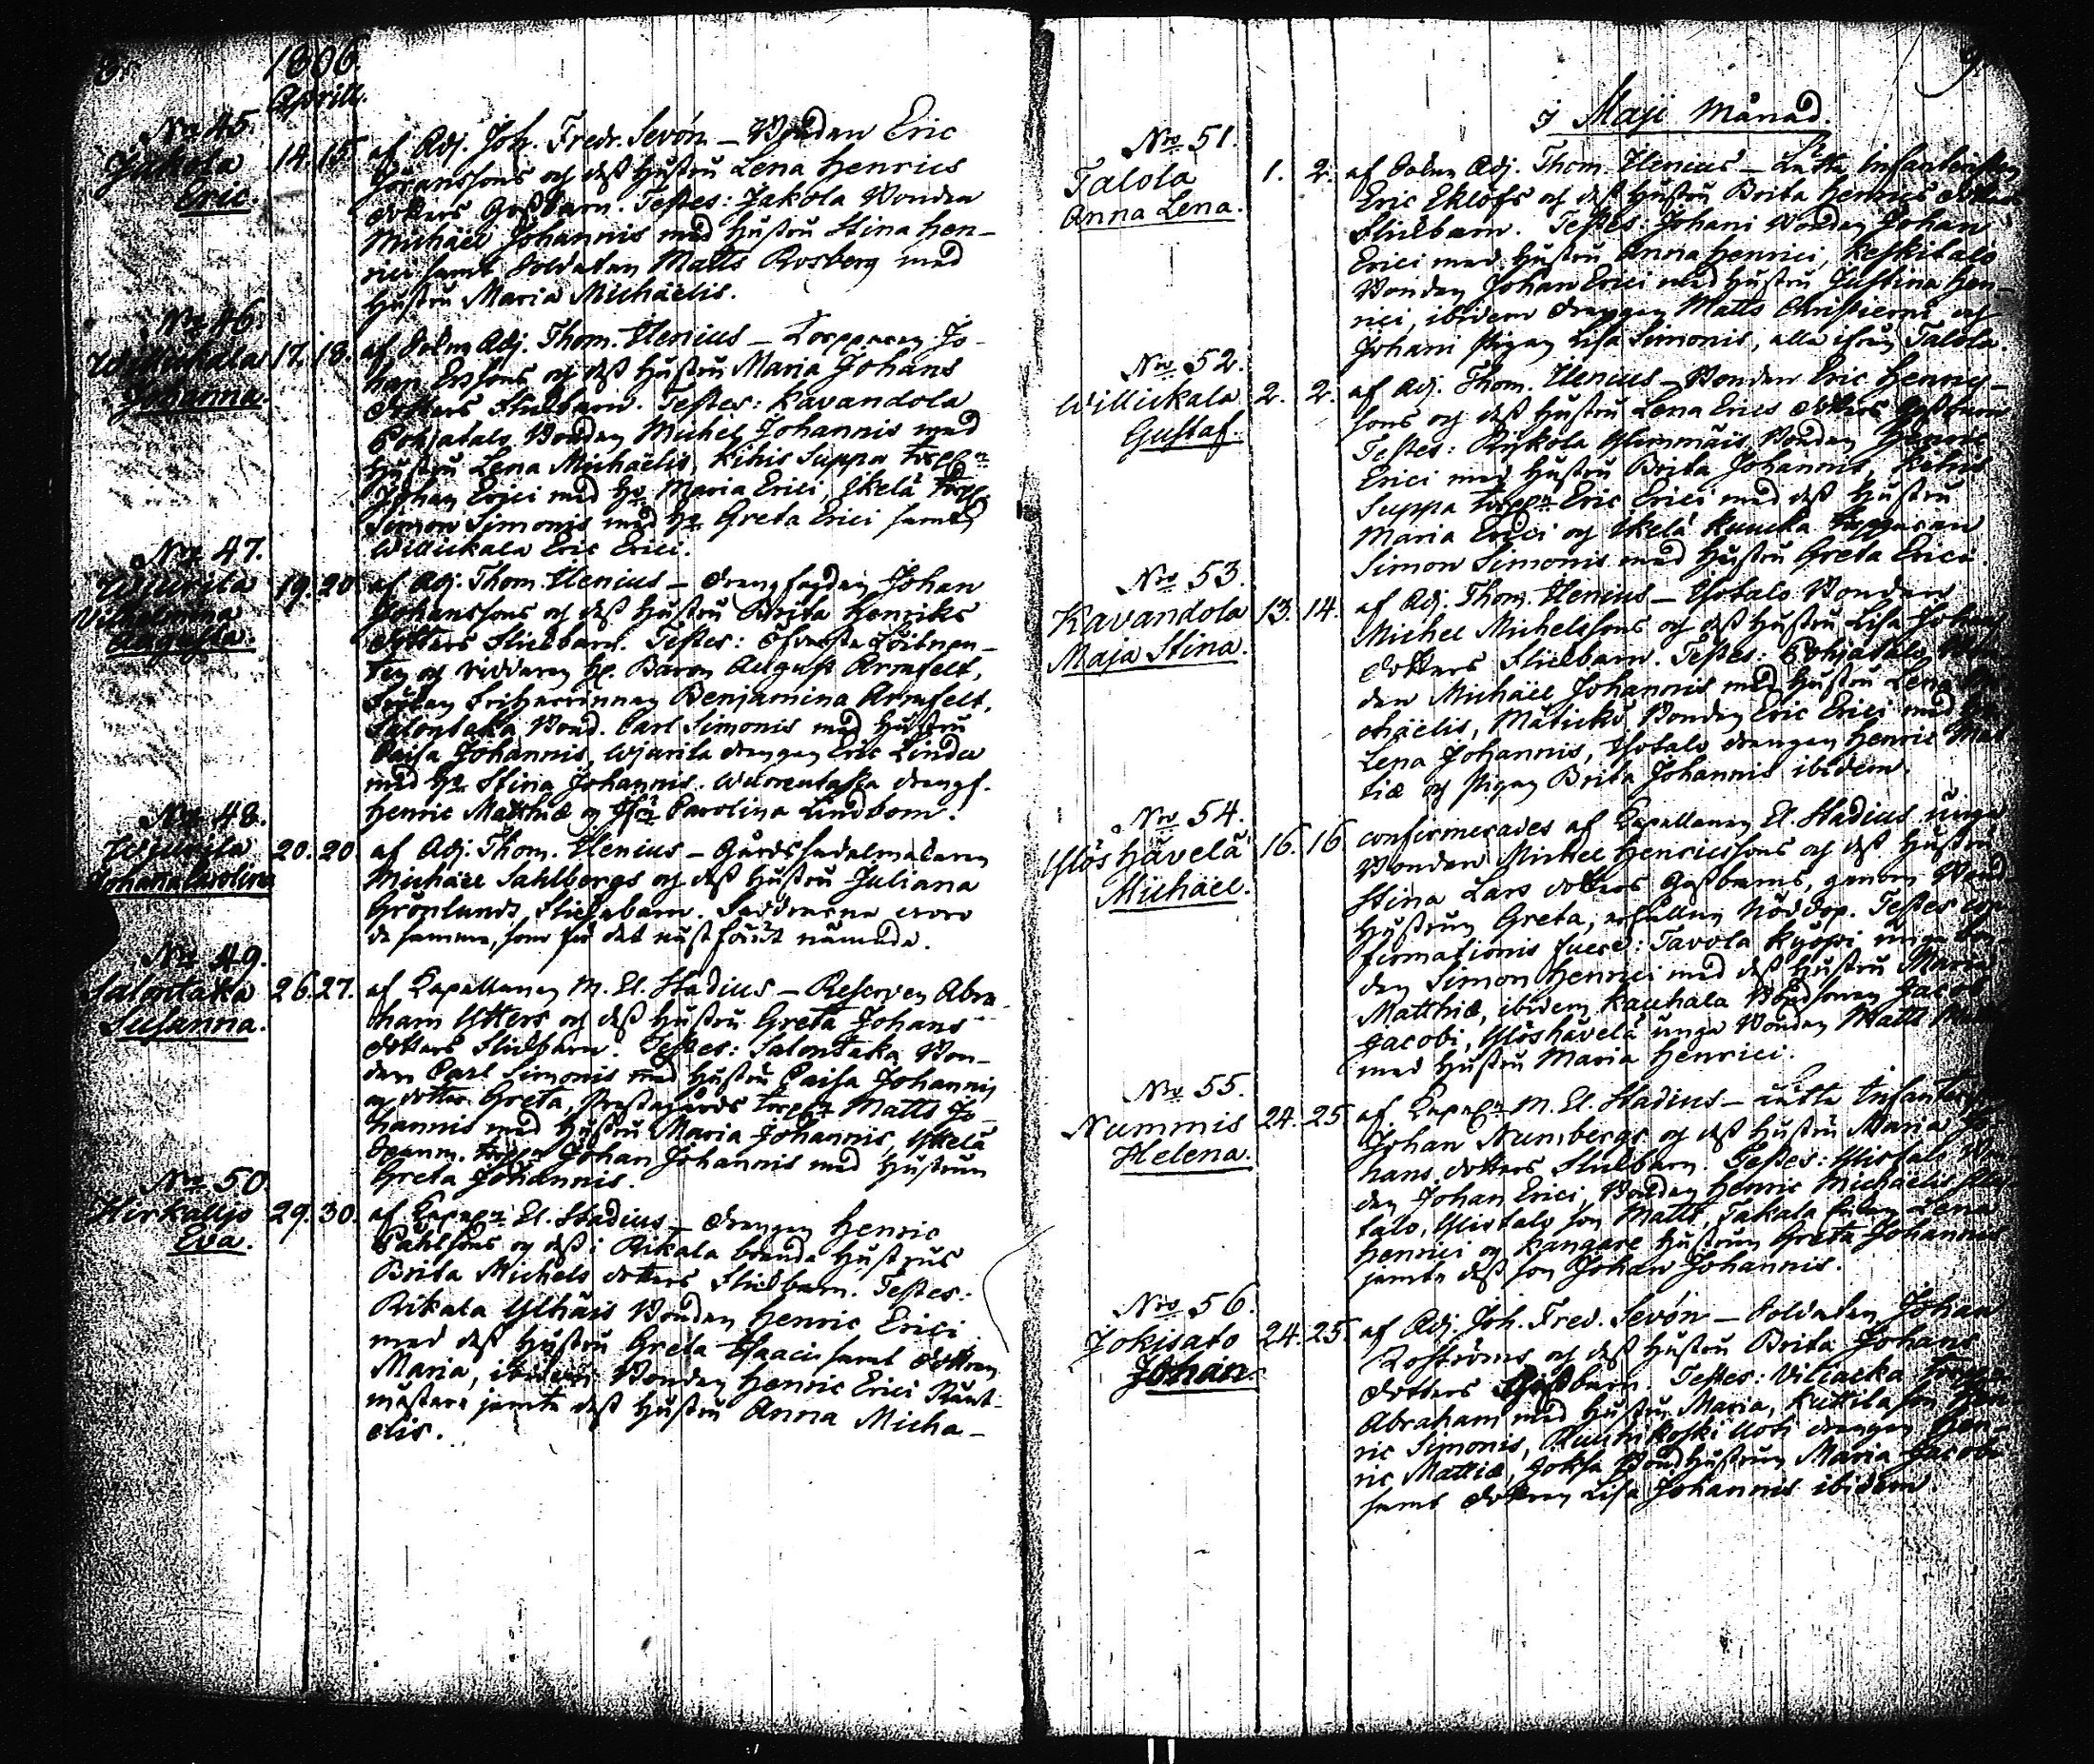 8.
1806.
Aprill.
No 45.
Jakola
Eric.
14. 15. af Adj. Joh. Fredr. Sevón — Bonden Eric
Göranssons och dess Hustru Lena Henrics
dotters Gossbarn. Testes: Jakola Bonden
Michäel Johannis med Hustru Stina Hen-
rici samt Soldaten Matts Rosberg med
Hustru Maria Michäelis.
No 46.
Willickala
Johanna.
17. 18. af Adj. Thom. Elenius — Torpparen Jo-
han Erssons och dess Hustru Maria Johans
dotters Flickbarn. Testes: Kavandola
Pohjatalo Bonden Michel Johannis med
Hustru Lena Michäelis, Kihis Suppa Torpn
Johan Erici med H. Maria Erici, Ikelä Torp.
Simon Simonis med H. Greta Erici samt
Willickala Eric Erici.
No 47.
Wjurila
Vilhelmina
Augusta.
19. 20. af Adj. Thom. Elenius — Drengfogden Johan
Johanssons och dess Hustru Brita Henriks
dotters Flickbarn. Testes: Öfverste Löitnan-
ten och Riddaren H. Baron August Armfelt,
Friherrinnan Benjamina Armfelt,
Salontaka Bond. Carl Simonis med Hustru
Caisa Johannis, Wjurila drengen Eric Linda
med H. Stina Johannis. drengf.
Henric Matthiæ og Carolina Lindbom.
No 48.
Wjurila
Johana Carolina
20. 20 af Adj. Thom. Elenius — Gårdssadelmakaren
Michäel Sahlbergs och dess Hustru Juliana
Grönlunds Flickabarn. Faddrarna voro
de samma, som på det näst förut nämnda.
No 49.
Salontaka
Susanna.
26. 27. af Kapellanen M. El. Stadius — Reserven Abra-
ham Ytters och dess Hustru Greta Johans
dotters Flickbarn. Testes: Salontaka Bon-
den Carl Simonis med Hustru Caisa Johannis
och dotter Greta, Prestegårds Torpn Matts Jo-
hannis med Hustru Maria Johannis,
Johan Johannis med Hustrun
Greta Johannis.
No 50
Hirkallio
Eva.
29. 30. af Kapn El. Stadius — Drengen Henric
Påhlsons och dess i Rikala boende Hustrus
Brita Michels dotters Flickbarn. Testes:
Rikala Ylhäis Bonden Henric Erici
med dess Hustru Greta Isaaci samt dottren
Maria, ibidem Bonden Henric Erici
mästare jemte dess Hustru Anna Micha-
elis.
9.
I Maji Månad.
No 51.
Talola
Anna Lena.
1. 2. af Adj. Thom. Elenius — Lätta Infanteristen
Eric Eklöfs och dess Hustru Brita Henrics dotters
Flickbarn. Testes: Johani Bonden Johan
Erici med Hustru Anna Henrici, Keskitalo
Bonden Johan Erici med Hustru Justina Hen-
rici, ibidem drengen Matts Christierni och
Johani Pigan Lisa Simonis, alla ifrån Talola.
No 52.
Willickala
Gustaf.
2. 2. af Adj. Thom. Elenius — Bonden Eric Henrics-
sons och dess Hustru Lena Erics dotters Gossbarn
Testes: Rikola Bonden Henric
Erici med Hustru Brita Johannis, Kihis
Suppa Torpn Eric Erici med dess Hustru
Maria Erici og Ikelä Torpparen
Simon Simonis med Hustru Greta Erici.
No 53.
Kavandola
Maja Stina.
13. 14. af Adj. Thom. Elenius — Isotalo Bonden
Michel Michelssons och dess Hustru Lisa Johans
dotters Flickbarn. Testes: Pohjatalo Bon-
den Michäel Johannis med Hustru Lena Mi-
chäelis, Bonden Eric Erici med
Lena Johannis, Isotalo drengen Henric Mat-
tiæ og Pigan Brita Johannis ibidem.
No 54.
Ylöshävelä
Michäel.
16. 16 confirmerades af Kapellanen El. Stadius unga
Bonden Michel Henricssons och dess Hustru
Stina Lars dotters Gossbarns, genom
Hustrun Greta, erhållna Nöddop. Testes con-
firmationis fuere: Tavola Kyöpi unga Bon-
den Simon Henrici med dess Hustru Maria
Matthiæ, ibidem Kauhala Bondsonen Jacob
Jacobi, Ylöshävelä unga Bonden Matts
med Hustru Maria Henrici.
No 55.
Nummis
Helena.
24. 25 af Kapn M. El. Stadius — Lätta Infanter
Johan Numbergs og dess Hustru Maria Jo-
hans dotters Flickbarn. Testes: Bon-
den Johan Erici, Bonden Henric Michaelis
talo, son Matts, Lena
Henrici og Kangare Hustrun Greta Johannis
jemte dess son Johan Johannis.
No 56.
Jokisato
Johan.
24. 25. af Adj. Joh. Fred. Sevón — Soldaten Johan
Roströms och dess Hustru Brita Johans
dotters Gossbarn. Testes:
Abraham med Hustru Maria, Kuttila son Hen-
ric Simonis, drengen Hen-
ric Mattiæ, Maria Jacobi
samt dottren Lisa Johannis ibidem.